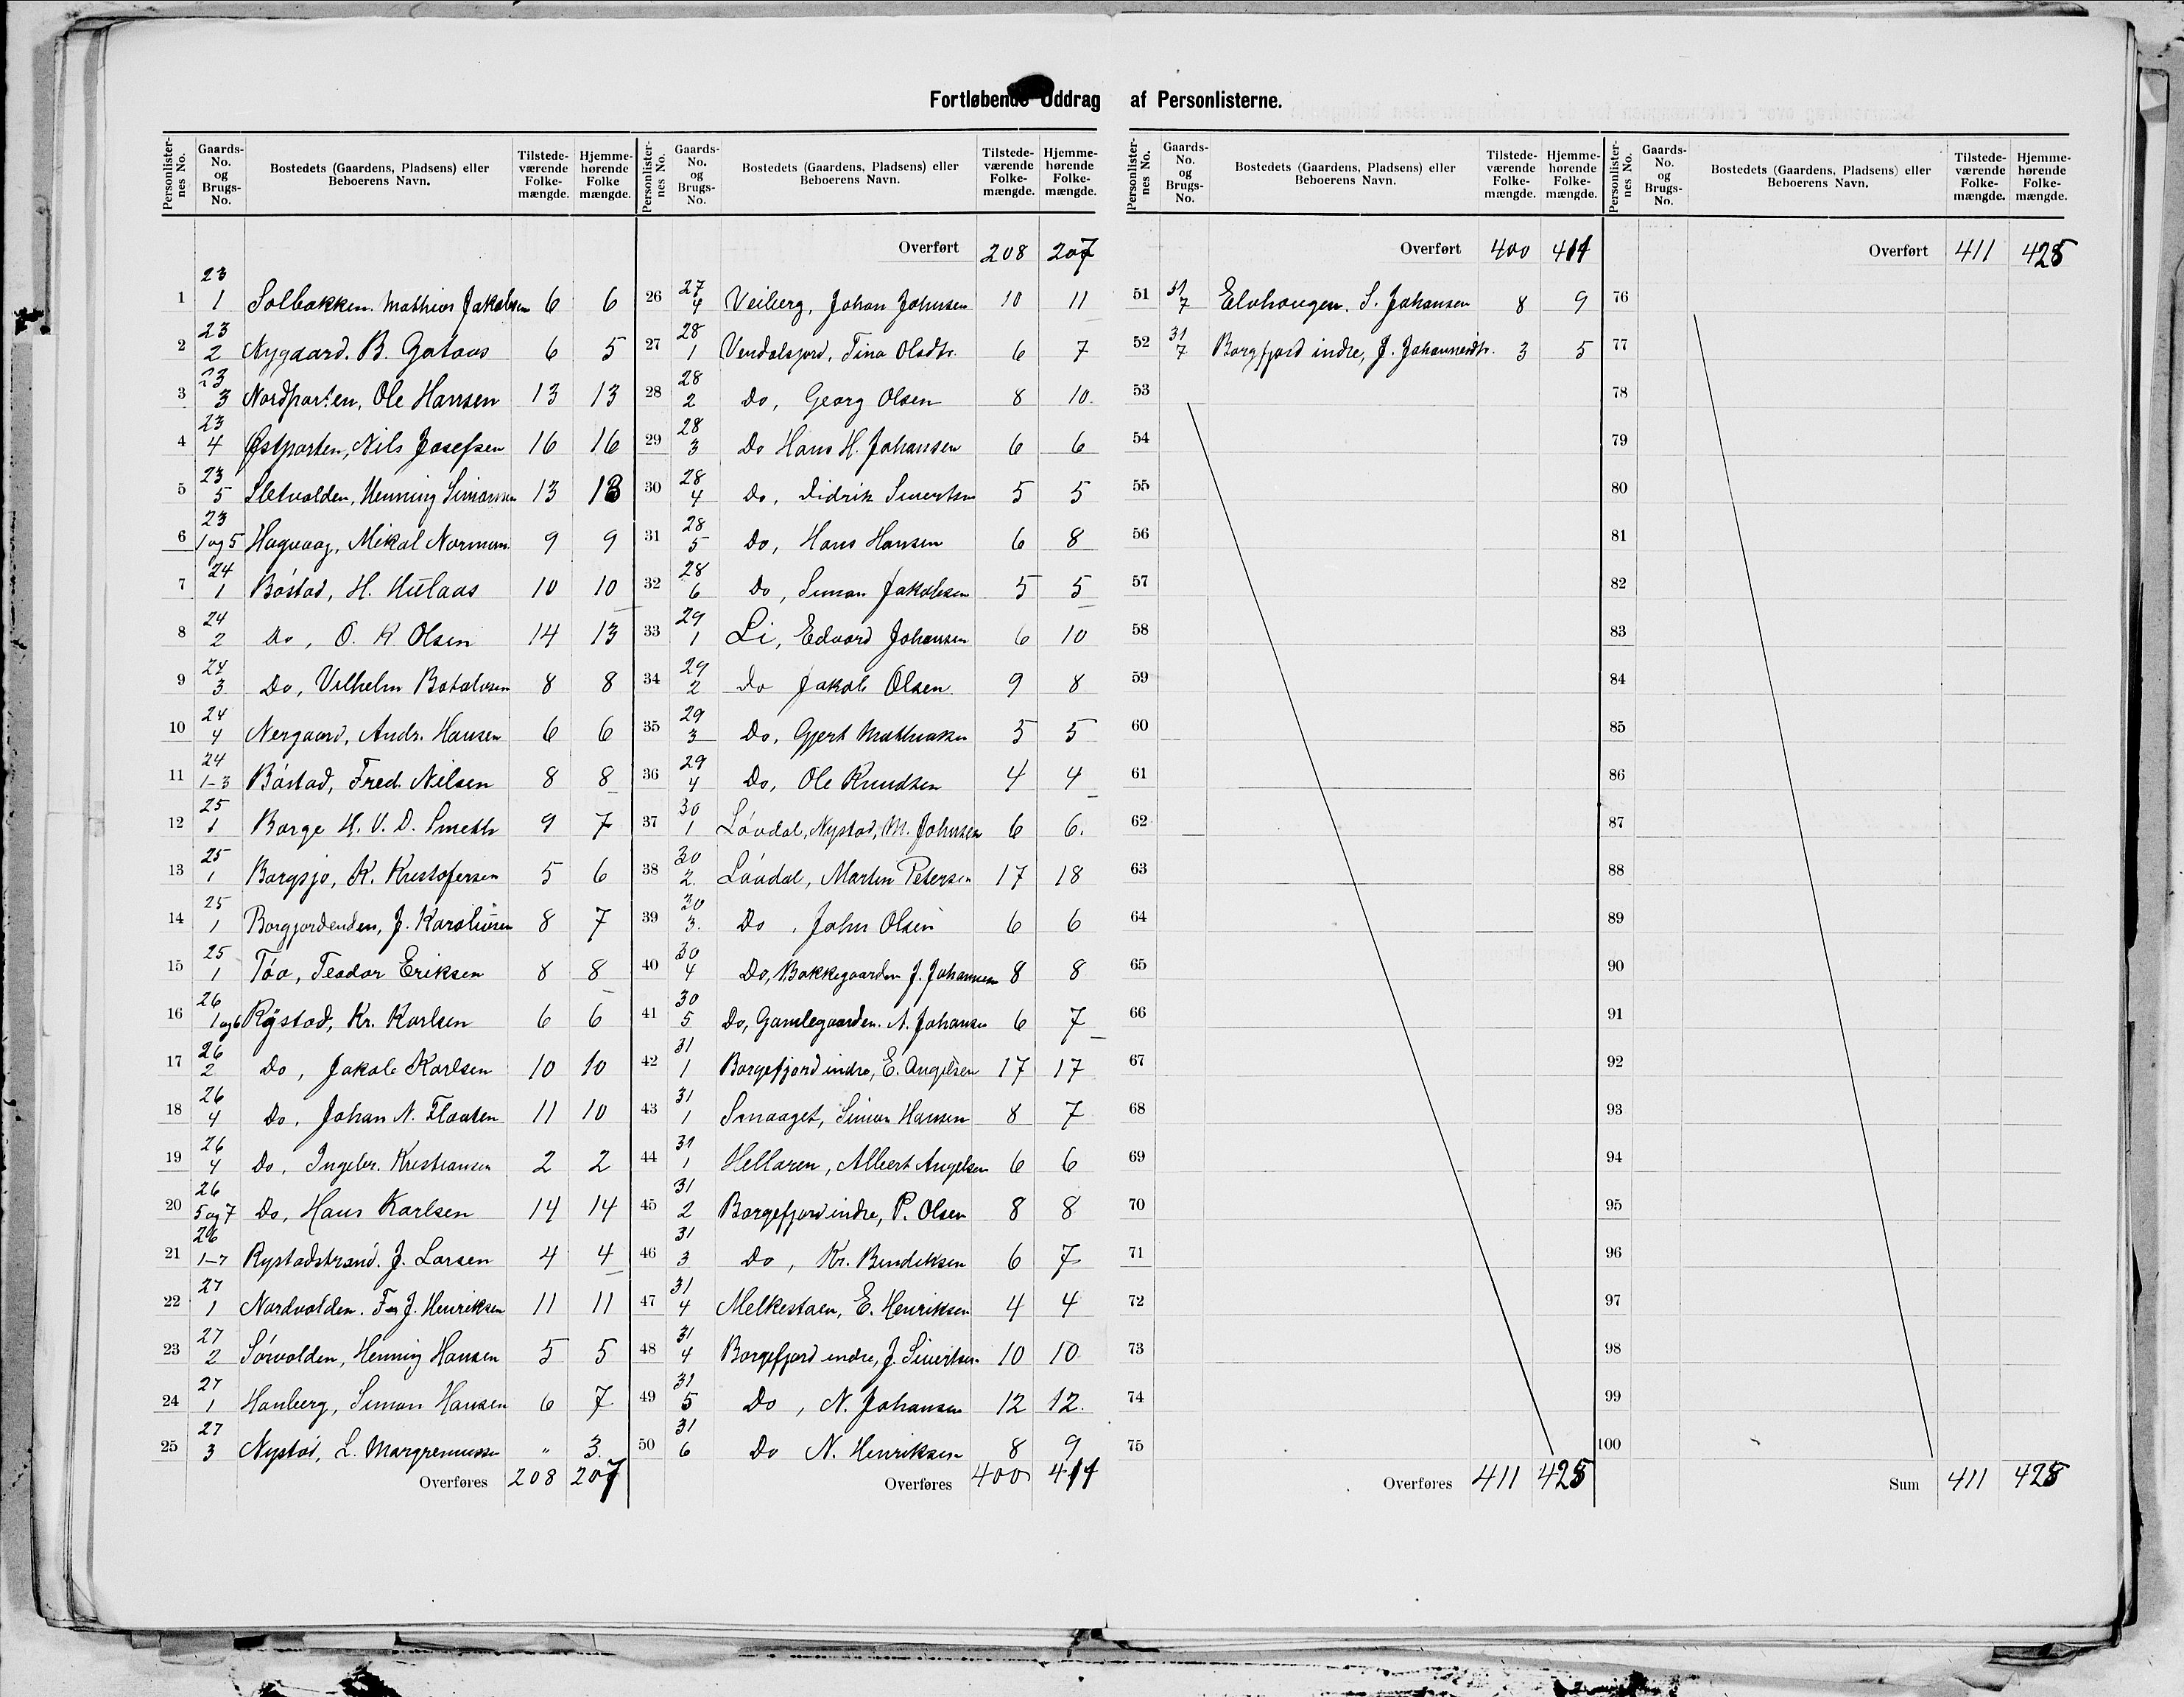 Fortløbende Uddrag af Personlisterne.
Personlisternes No. Gaards-No. og Brugs-No. Bostedets (Gaardens, Pladsens) eller Beboerens Navn. Tilstedeværende Folkemængde. Hjemmehørende Folkemængde.
1 23 1 Solbakken. Mathias Jakobsen 6 6
2 23 2 Nygaard. B. Gataas 6 5
3 23 3 Nordparten, Ole Hansen 13 13
4 23 4 Østparten, Nils Josefsen 16 16
5 23 5 Sletvolden, Henning Simonsen 13 13
6 23 1 og 5 Hagvaag, Mikal Norman 9 9
7 24 1 Bøstad, H. Hulaas 10 10
8 24 2 Do, O. K. Olsen 14 13
9 24 3 Do, Vilhelm Botolvsen 8 8
10 24 4 Nergaard, Andr. Hansen 6 6
11 24 1-3 Bøstad, Fred. Nilsen 8 8
12 25 1 Borge H. V. D. Smeth 9 7
13 25 1 Borgsjø, K. Kristofersen 5 6
14 25 1 Borgjordenden, J. Karoliusen 8 7
15 25 1 Tøa, Teodor Eriksen 8 8
16 26 1 og 6 Rystad, Kr. Karlsen 6 6
17 26 2 Do, Jakob Karlsen 10 10
18 26 4 Do, Johan N. Flaaten 11 10
19 26 4 Do, Ingebr. Kristiansen 2 2
20 26 5 og 7 Do, Hans Karlsen 14 14
21 26 1-7 Rystadstrand. J. Larsen 4 4
22 27 1 Nordvolden. J. Henriksen 11 11
23 27 2 Sørvolden, Henning Hansen 5 5
24 27 1 Hanberg, Simon Hansen 6 7
25 27 3 Nystad, L. Margremussen " 3
Overføres 208 207
Overført 208 207
26 27 4 Veiberg, Johan Johnsen 10 11
27 28 1 Vendalsjord, Tina Olsdtr. 6 7
28 28 2 Do, Georg Olsen 8 10.
29 28 3 Do Hans H. Johansen 6 6
30 28 4 Do, Didrik Sivertsen 5 5
31 28 5 Do, Hans Hansen 6 8
32 28 6 Do, Simon Jakobsen 5 5
33 29 1 Li, Edvard Johansen 6 10
34 29 2 Do Jakob Olsen 9 8
35 29 3 Do, Gjert Mathiasen 5 5
36 29 4 Do, Ole Knudsen 4 4
37 30 1 Løvdal, Nystad, M. Johnsen 6 6.
38 30 2. Løvdal, Martin Petersen 17 18
39 30 3. Do, John Olsen 6 6
40 30 4 Do, Bakkegaarden J. Johannesen 8 8
41 30 5 Do, Gamlegaarden. A. Johansen 6 7
42 31 1 Borgefjord indre, E. Angelsen 17 17
43 31 1 Smaaget, Simon Hansen 8 7
44 31 1 Hellaren, Albert Angelsen 6 6
45 31 2 Borgefjord indre, P. Olsen 8 8
46 31 3 Do, Kr. Bendiksen 6 7
47 31 4 Melkestaen, E. Henriksen 4 4
48 31 4 Borgefjord indre, J. Sivertsen 10 10
49 31 5 Do, N. Johansen 12 12.
50 31 6 Do N. Henriksen 8 9
Overføres 400 411
Personlisternes No. Gaards-No. og Brugs-No. Bostedets (Gaardens, Pladsens) eller Beboerens Navn. Tilstedeværende Folkemængde. Hjemmehørende Folkemængde.
Overført 400 411
51 31 7 Elvhaugen. S. Johansen 8 9
52 31 7 Borgfjord indre, J. Johannesdtr. 3 5
53
54
55
56
57
58
59
60
61
62
63
64
65
66
67
68
69
70
71
72
73
74
75
Overføres 411 425
Overført 411 425
76
77
78
79
80
81
82
83
84
85
86
87
88
89
90
91
92
93
94
95
96
97
98
99
100
Sum 411 425